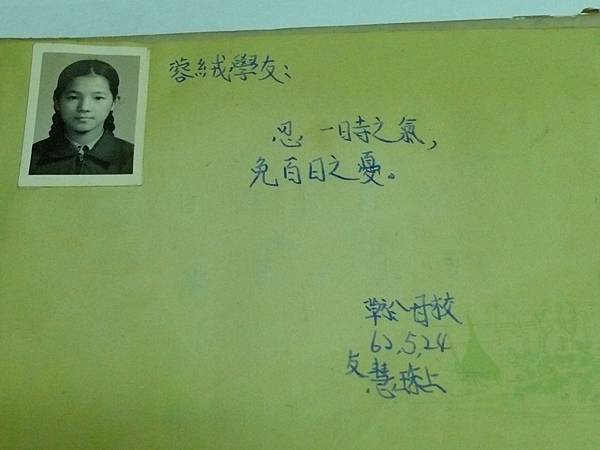 蓉絨學友：
忍一時之氣，
免百日之憂。
母校
62,5,24
友慧珠上